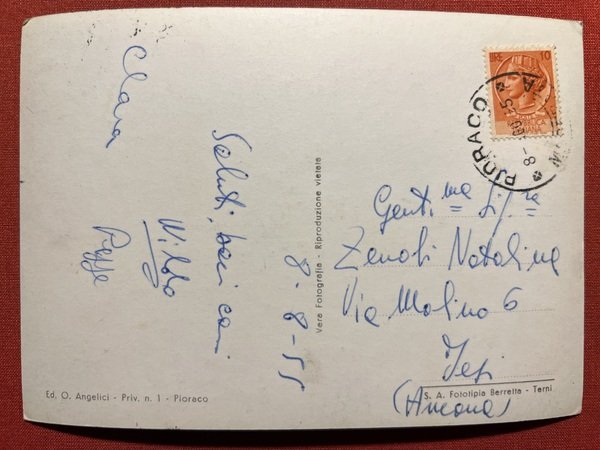 Clara
Saluti, baci cari
Wilda
Peppe
8-8-55
Vera Fotografia - Riproduzione vietata
LIRE 10
PIORACO
Gent.ma Sig.ra
Zenobi Natalina
Via Molino 6
Jesi
(Ancona)
Ed. O. Angelici - Priv. n. 1 - Pioraco
S. A. Fototipia Berretta - Terni